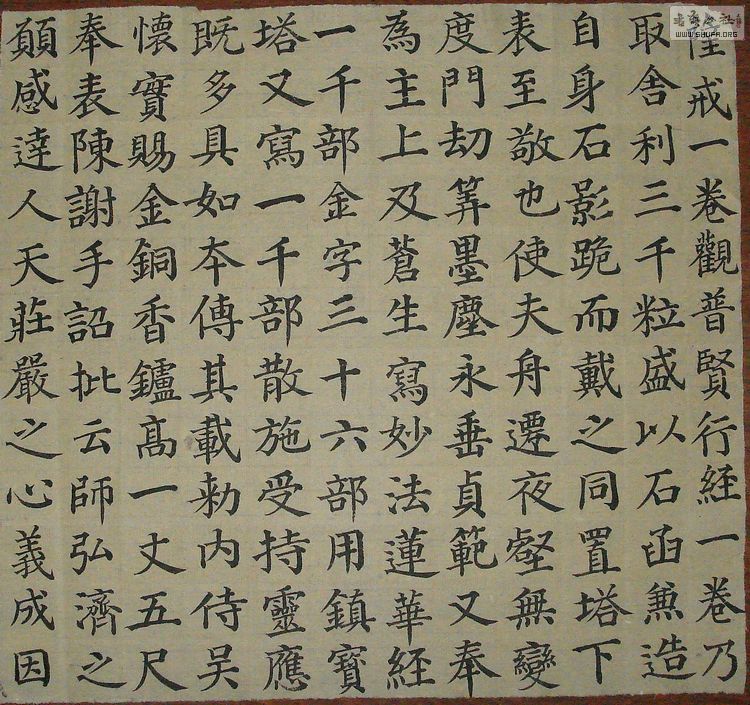 戒一卷觀普賢行経一卷乃
取舎利三千粒盛以石函兼造
自身石影跪而戴之同置塔下
表至敬也使夫舟遷夜壑無變
度門劫筭墨塵永垂貞範又奉
為主上及蒼生寫妙法蓮華経
一千部金字三十六部用鎮寶
塔又寫一千部散施受持靈應
既多具如夲傳其載勑内侍吴
懷實賜金銅香鑪髙一丈五尺
奉表陳謝手詔批云師弘濟之
願感達人天莊嚴之心義成因
WWW.SHUFA.ORG